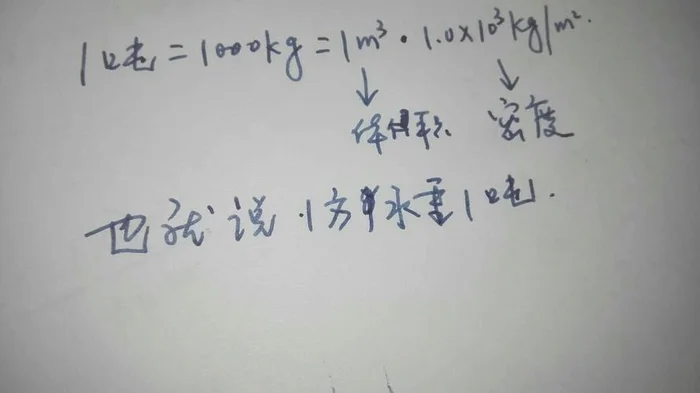 1吨=1000kg=1m³·1.0×10³kg/m².
体积 密度
也就说·1方水重1吨.